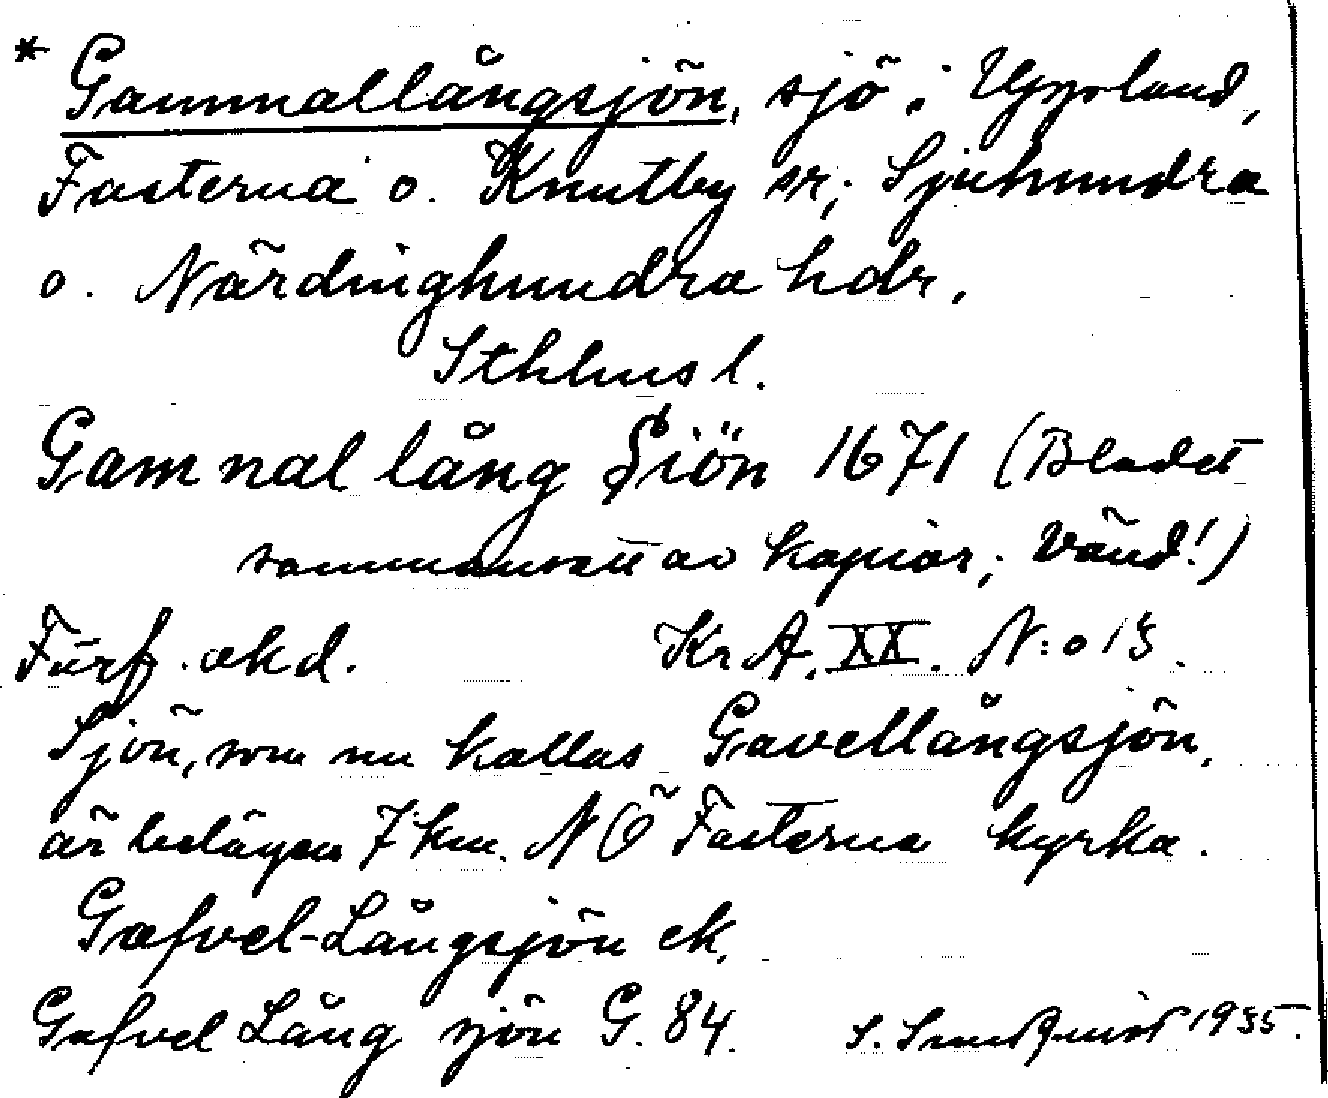 * Gamnallångsjön, sjö i Uppland,
Fasterna o. Knutby sr; Sjuhundra
o. Närdinghundra hdr,
Sthlms l.
Gamnal lång Siön 1671 (Bladet
sammansatt av kopior; Vänd!)
Förf. okd. Kr A. XX. N:o 13.
Sjön, som nu kallas Gavellångsjön,
är belägen 7 km. NÖ Fasterna kyrka.
Gafvel-Långsjön ek.
Gafvel Lång sjön G. 84. S. Sundquist 1935.